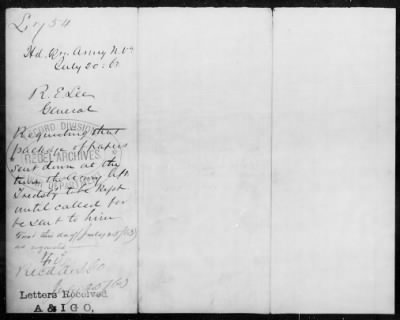 Hd. Qrs. Army N. Va
July 20: 63
R. E. Lee
General
RECORD DIVISION
REBEL ARCHIVES
WAR DEPARTMENT
Requesting that
package of papers
sent down at the
time the army left
Fredsbg to be kept
until called for
be sent to him
Sent this day (July 25/63)
as requested
Recd A&IGO
July 25/63
Letters Received
A & I G O,